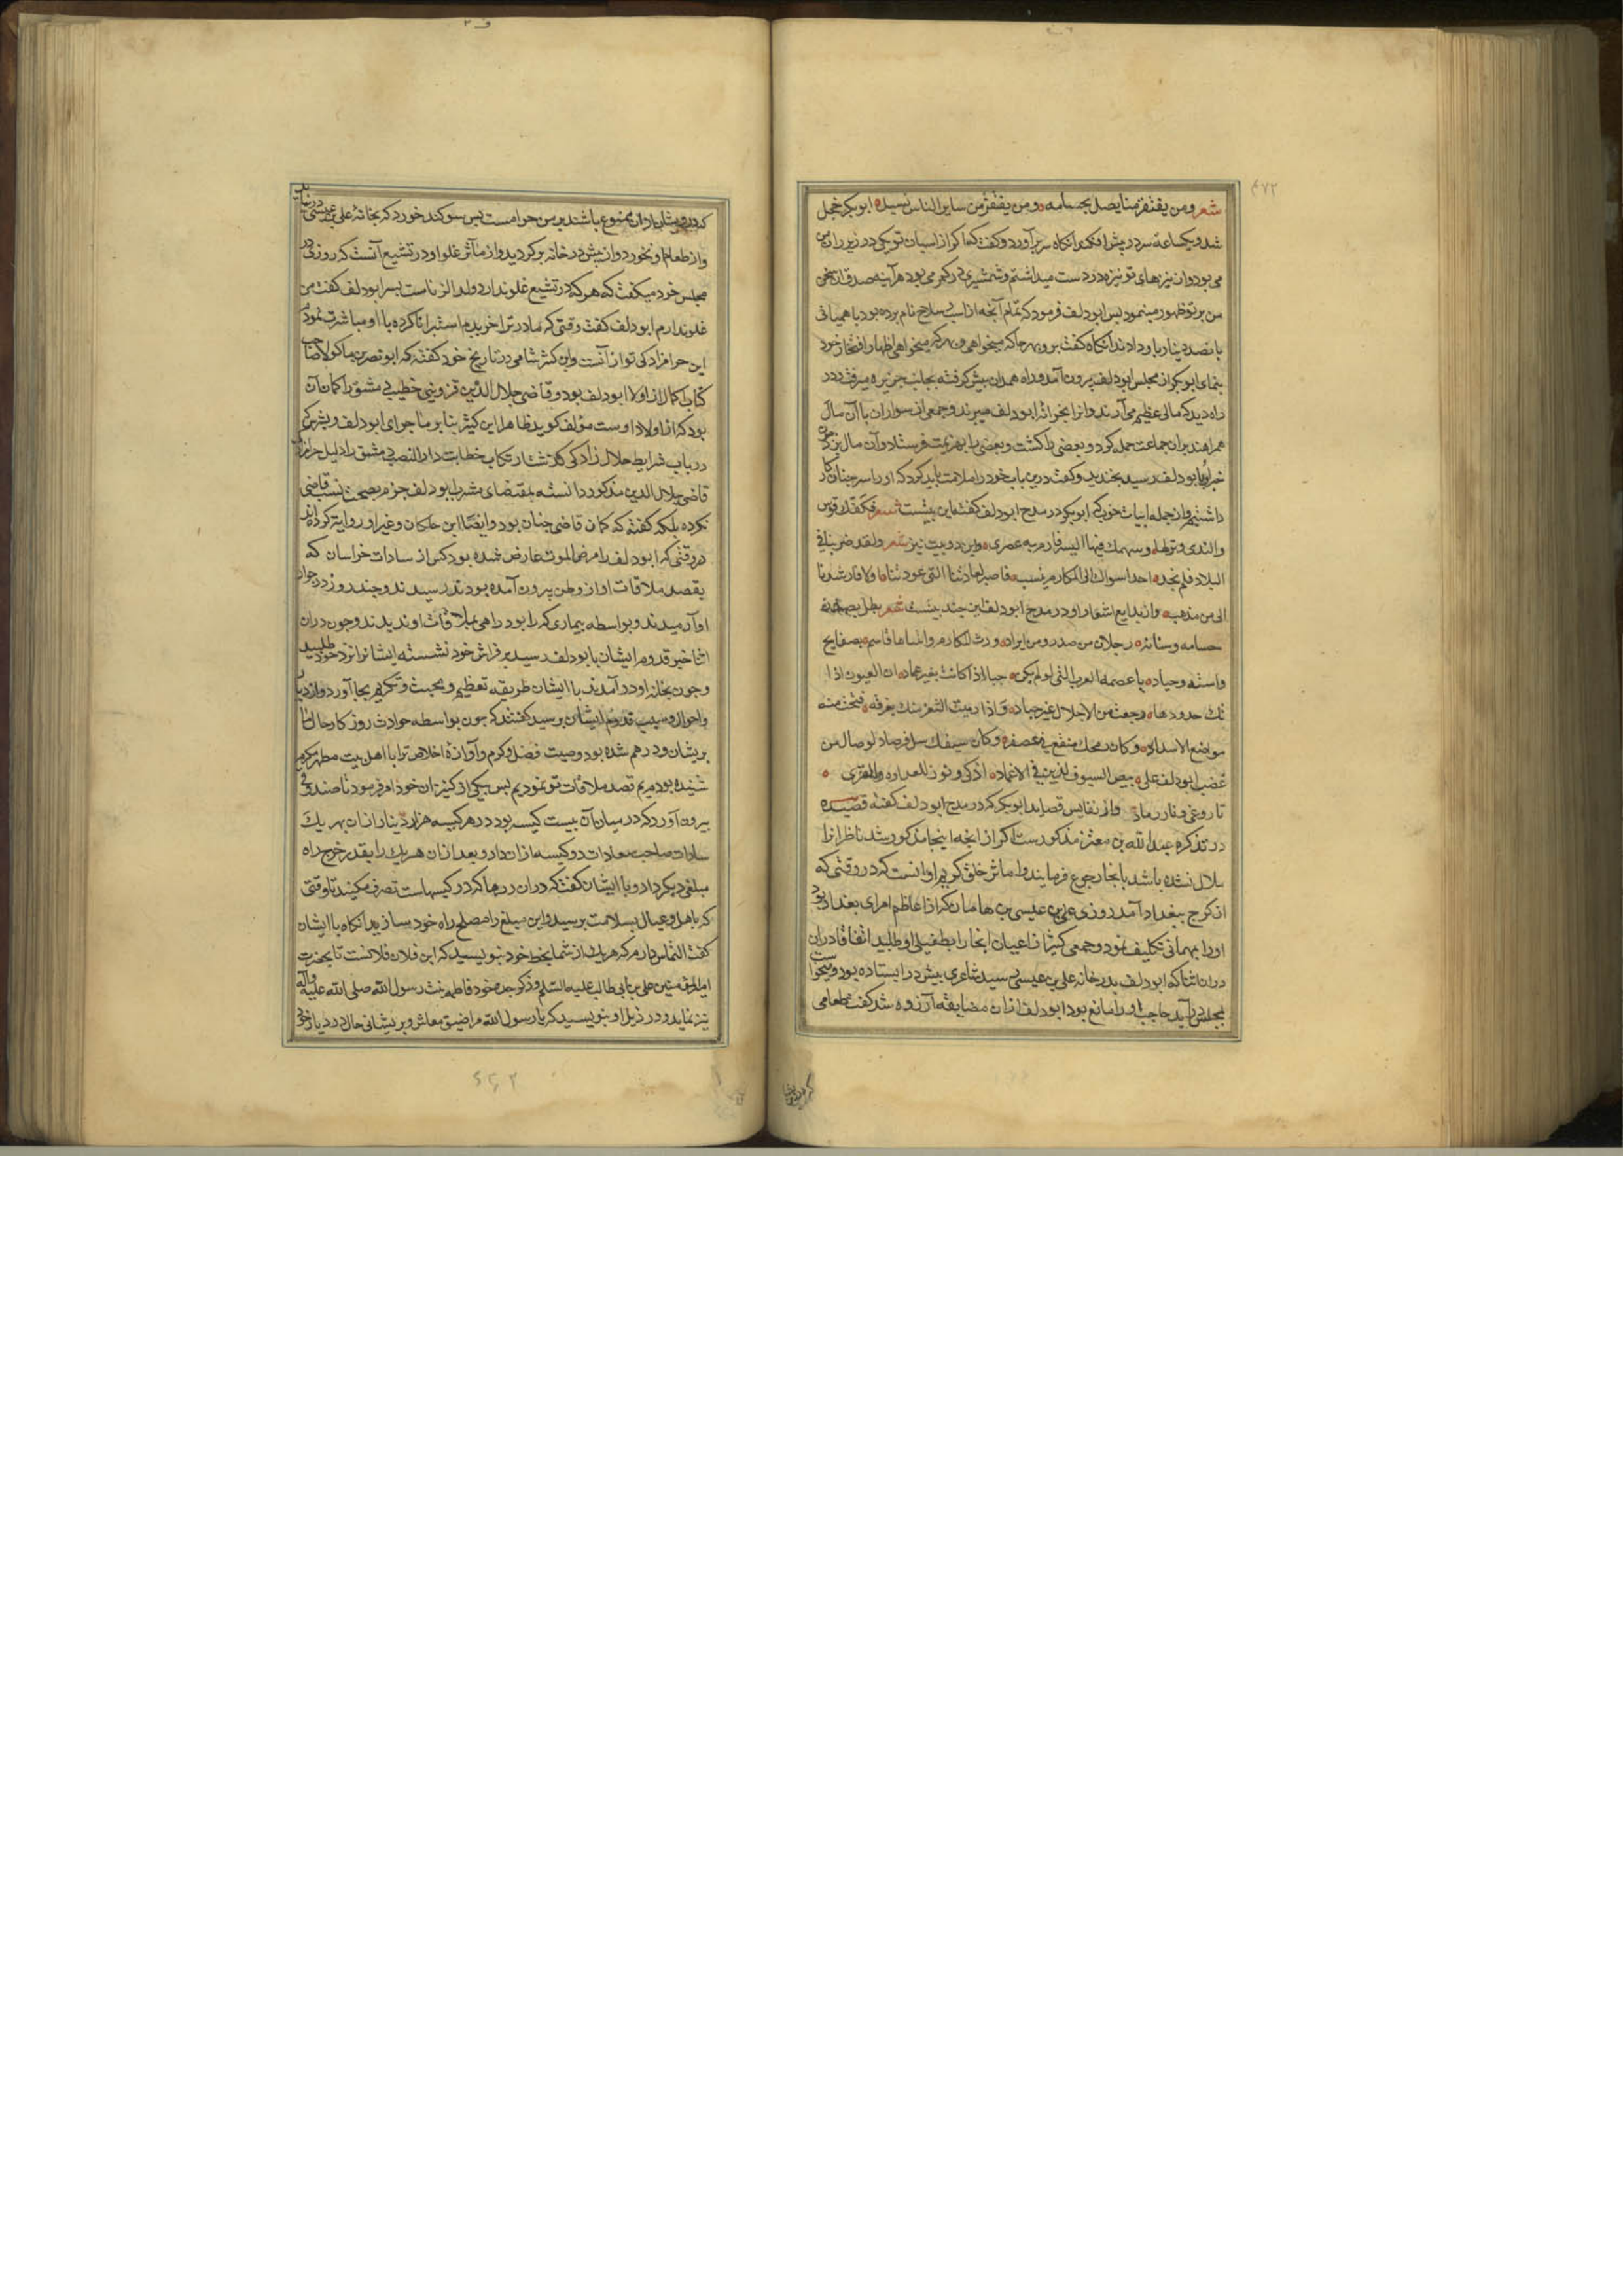 ۴۷۲
شعر ومن يفتقر منا يصل بحسامه ومن يفتقر من ساير الناس يسيل ابو بكر خجل
شد و یکساعة سر در پیش افکند آنکاه سر برآورد و کفت که اکر از اسبان تو یکی در زیر ران من
می بود و از نیزهای تو نیزه در دست میداشتم و شمشیری در کمر می بود هر آینه صدق این سخن
من بر تو ظهور مینمود پس ابو دلف فرمود که تمام آنچه از اسب و سلاح نام برده بود با همیانی
پانصد دینار باو دادند آنکاه کفت برو بهر جا که میخواهی و بهر که میخواهی اظهار افتخار خود
بنمای ابو بکر از مجلس ابو دلف بیرون آمد و راه همدان پیش کرفته بجانب جزیره میرفت در
راه دید که مالی عظیم می آرند و از برا بخزانه ابو دلف میبرند و جمعی از سواران با آن مال
همراهند بران جماعت حمله کرد و بعضی را کشت و بعضی را بهزیمت فرستاد و آن مال بزد چون
خبر او بابو دلف رسید بخندید و کفت درین باب خود را ملامت باید کرد که او را بر چنان کار
داشتیم و از جمله ابیات خوب که ابو بکر در مدح ابو دلف کفته این بیتست شعر فكفك قوس
والندى وتر لها وسهمك فيها اليسر فارم به عسرى و این دو بیت نیز شعر ولقد ضربنا فى
البلاد فلم نجد احدا سواك الى المكارم ينسب فاصبر لعادتنا التى عودتنا او لا فارشدنا
الى من نذهب و از بدایع اشعار او در مدح ابو دلف این چند بیتست شعر بطل بصدر
حسامه وسنانه رجلان من صدر ومن ايراد ورث المكارم وابتناها قاسم بصفايح
واسنة وجياد يا عصمة العرب التى لو لم يكن حيا لاذا كانت بغير عماد ان العيون اذا
تك حدودها رجعت من الاجلال غير حداد واذا رميت الثغر منك بعزمة فتحت منه
مواضع الاسداد وكان رمحك منقع فى عصفر وكان سيفك سل فرصاد لو صال من
غضب ابو دلف على بيض السيوف لذبن فى الاغماد اذكى ونور للعداوة والقرى
نارين نار وغى و نار رماد و از نفایس قصاید ابو بکر که در مدح ابو دلف کفته قصیده
در تذکره عبد الله بن معتز مذکور است اکر از آنچه اینجا مذکور شد ناظر آنرا
ملال نشده باشد بانجا رجوع فرمایند و از مآثر خلق کریم او آنست که در وقتی که
از کرج ببغداد آمد روزی علی بن عیسی بن هامان که از اعاظم امرای بغداد بود
او را بمهمانی تکلیف نمود و جمعی کثیر از اعیان آنجا را بطفیلی او طلبید اتفاقا دران
دران اثنا که ابو دلف بدر خانه علی بن عیسی رسید شاعری پیش در ایستاده بود و میخواست
بمجلس در آید حاجب او را مانع بود ابو دلف ازان مضایقه آزرده شد کفت طعامی
که درویشان ازان ممنوع باشند بر من حرامست پس سوکند خورد که بخانه علی بن عیسی در نیاید
و از طعام او نخورد و از پیش در خانه برکردید و از مآثر غلو او در تشیع آنست که روزی در
مجلس خود میکفت که هر که در تشیع غلو ندارد ولد الزناست پسر ابو دلف کفت من
غلو ندارم ابو دلف کفت وقتی که مادر ترا خریدم استبرا ناکرده با او مباشرت نمودم
این حرامزادکی تو ازانست و ابن کثیر شامی در تاریخ خود کفته که ابو نصر بن ماکولا صاحب
کتاب اکمال از اولاد ابو دلف بود و قاضی جلال الدین قزوینی خطیب دمشق را کمان آن
بود که از اولاد اوست مؤلف کوید ظاهرا ابن کثیر بنا بر ماجرای ابو دلف و پسرش که
در باب شرایط حلال زادکی کذشت ارتکاب خطابت دار النصب دمشق را دلیل حرامزادکی
قاضی جلال الدین مذکور دانسته بمقتضای مشرب ابو دلف جزم بصحت نسب قاضی
نکرده بلکه کفته که کمان قاضی چنان بود و ایضا ابن خلکان و غیر او روایت کرده اند
در وقتی که ابو دلف را مرض الموت عارض شده بود کس از سادات خراسان که
بقصد ملاقات او از وطن بیرون آمده بودند رسیدند و چند روز در جوار
او آرمیدند و بواسطه بیماری که را بود راهی بملاقات او ندیدند و چون دران
اثنا خبر قدوم ایشان بابو دلف رسید بر فراش خود نشسته ایشانرا نزد خود طلبید
و چون بخانه او در آمدند با ایشان طریقه تعظیم و محبت و تکریم بجا آورد و از دیار
و احوال و سبب قدوم ایشان پرسید کفتند که چون بواسطه حوادث روزکار حال ما
پریشان و درهم شده بود و صیت فضل و کرم و آوازه اخلاص ترا با اهل بیت مطهر مکرم
شنیده بودیم قصد ملاقات تو نمودیم پس بیکی از کنیزان خود امر فرمود تا صندوقی
بیرون آورد که در میان آن بیست کیسه بود در هر کیسه هزار دینار ازان بهر یک
سادات صاحب سعادات دو کیسه ازان داد و بعد ازان هر یک را بقدر خرج راه
مبلغی دیکر داد و با ایشان کفت که دران زرها که در کیسهاست تصرف مکنید تا وقتی
که باهل و عیال بسلامت برسید و این مبلغ را مصالح راه خود سازید آنکاه با ایشان
کفت التماس دارم که هر یک از شما بخط خود بنویسید که ابن فلان فلانست تا بحضرت
امیر المؤمنین علی بن ابی طالب علیه السلم و ذکر جده خود فاطمه بنت رسول الله صلی الله علیه وآله
نیز نماید و در ذیل او بنویسید که یا رسول الله مرا ضیق معاش و پریشانی حال در دیار خود
که درویشان
۴۶۲